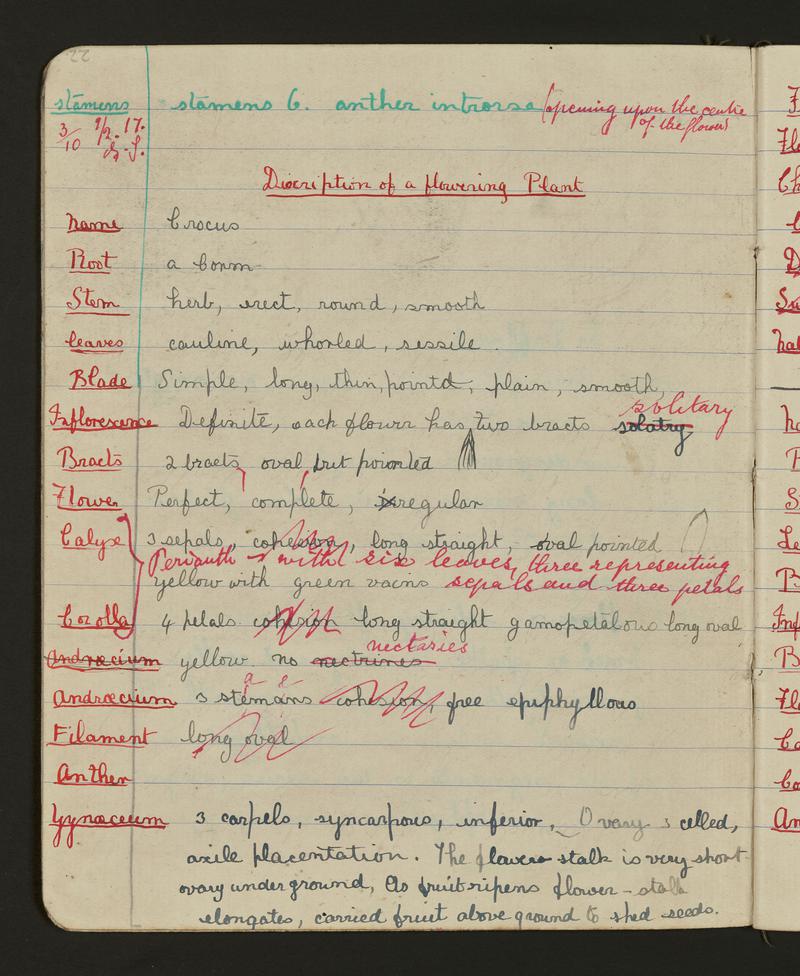 22
stamens stamens 6. anther introrse (opening upon the centre
of the flower)
3/10 9/2.17.
Discription of a flowering Plant
Name Crocus
Root a Corm
Stem herb, erect, round, smooth
leaves cauline, whorled, sessile.
Blade Simple, long, thin, pointd, plain, smooth,
solitary
Inflorescence Definite, each flower has two bracts solatry
Bracts 2 bracts, oval, but poionted
Flower Perfect, complete, irregular
Calyx 3 sepals, cohesion, long straight, oval pointed
Perianth with six leaves, three representing
yellow with green vacins sepals and three petals
Corolla 4 petals cohesion long straight gamopetalous long oval
nectaries
Andrœcium yellow. no nectrines
a e
Andrœcium 3 stemans cohesion, free epiphyllous
Filament long oval
Anther
Gynæceum 3 carpels, syncarpous, inferior, Ovary 3 celled,
axile placentation. The flower stalk is very short
ovary underground, As fruit ripens flower-stalk
elongates, carried fruit above ground to shed seeds.